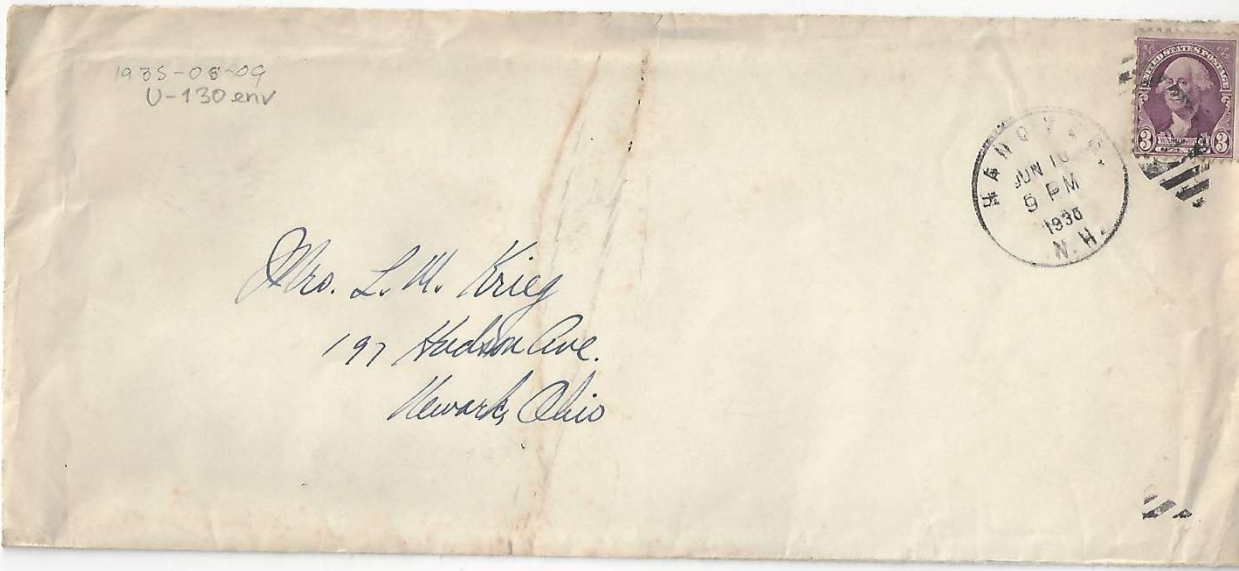 1935-06-09
U-130 env
UNITED STATES POSTAGE
3 3
HANOVER
JUN 10
5 PM
1935
N.H.
Mrs. L. M. Krieg
197 Hudson Ave.
Newark, Ohio